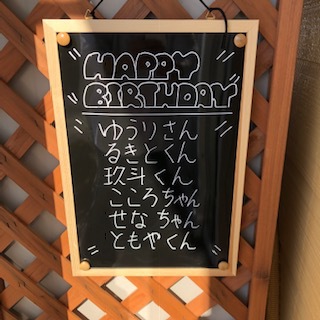 HAPPY
BIRTHDAY
ゆうりさん
るきとくん
玖斗くん
こころちゃん
せなちゃん
ともやくん